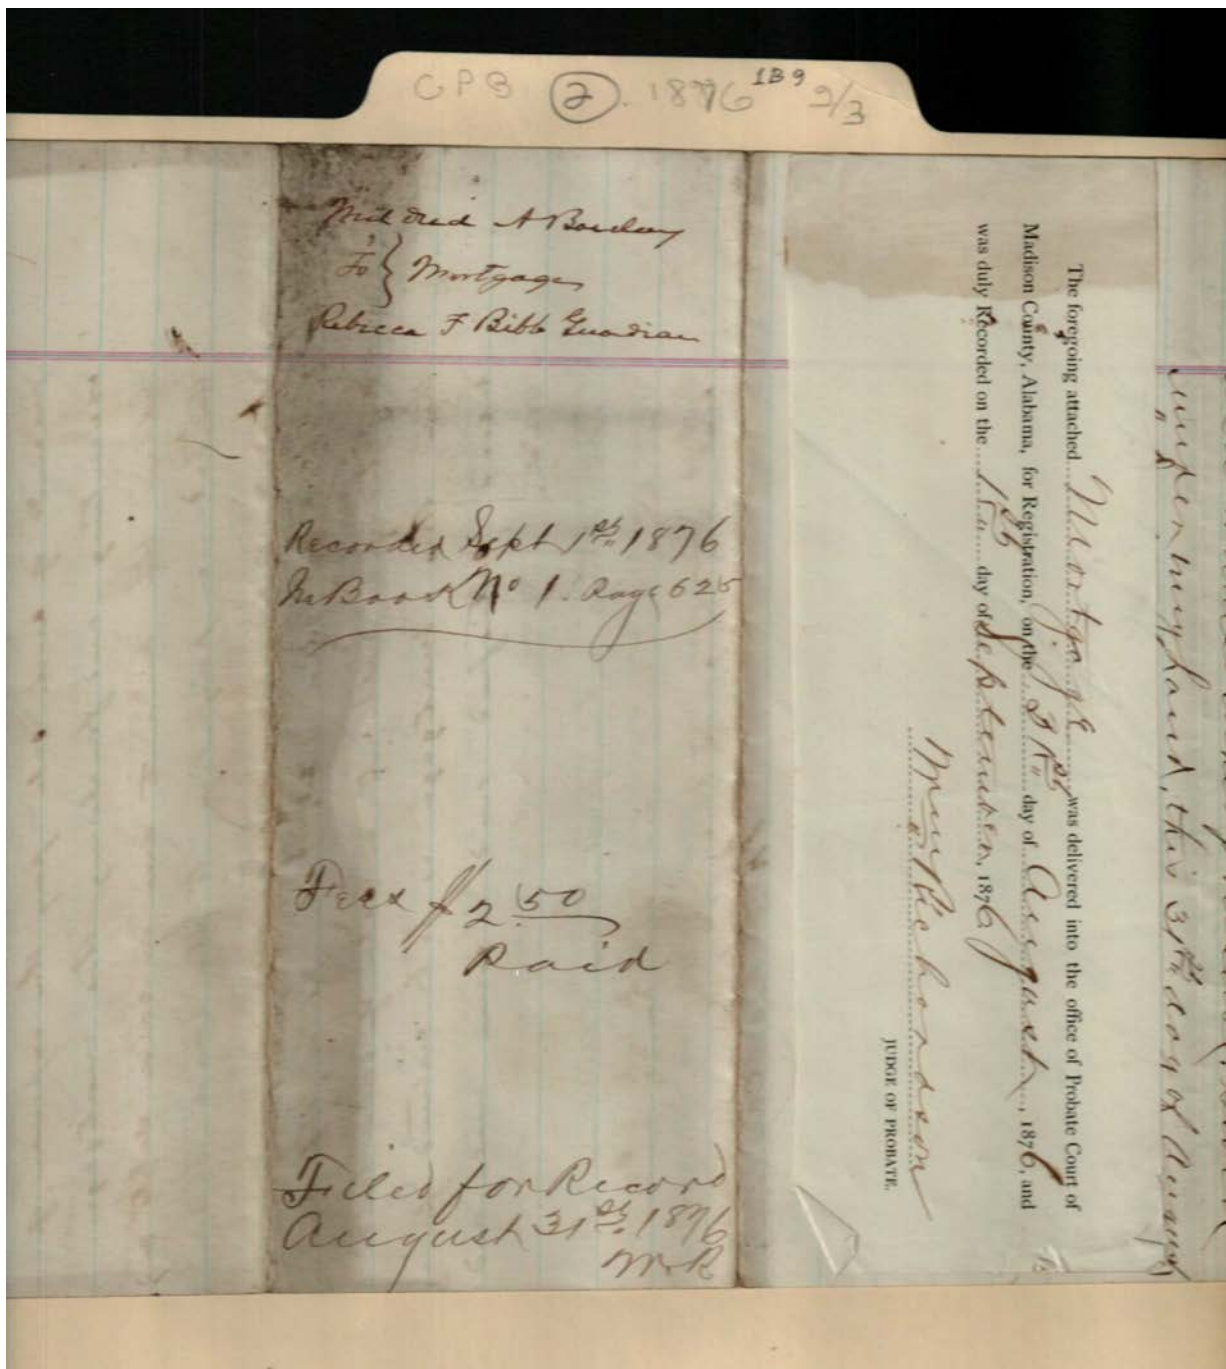 CPB ② 1876 1B9 2/3
Mildred A
To } Mortgage
Rebecca F Bibb Guardian
Recorded Sept 1st 1876
In Book No 1. Page 625
Fees $2.50
Paid
Filed for Record
August 31st 1876
WR
The foregoing attached Mortgage was delivered into the office of Probate Court of
Madison County, Alabama, for Registration, on the 31st day of August, 1876, and
was duly Recorded on the 1st day of September, 1876
Wm Richardson
JUDGE OF PROBATE.
my hand, this 31st day of August